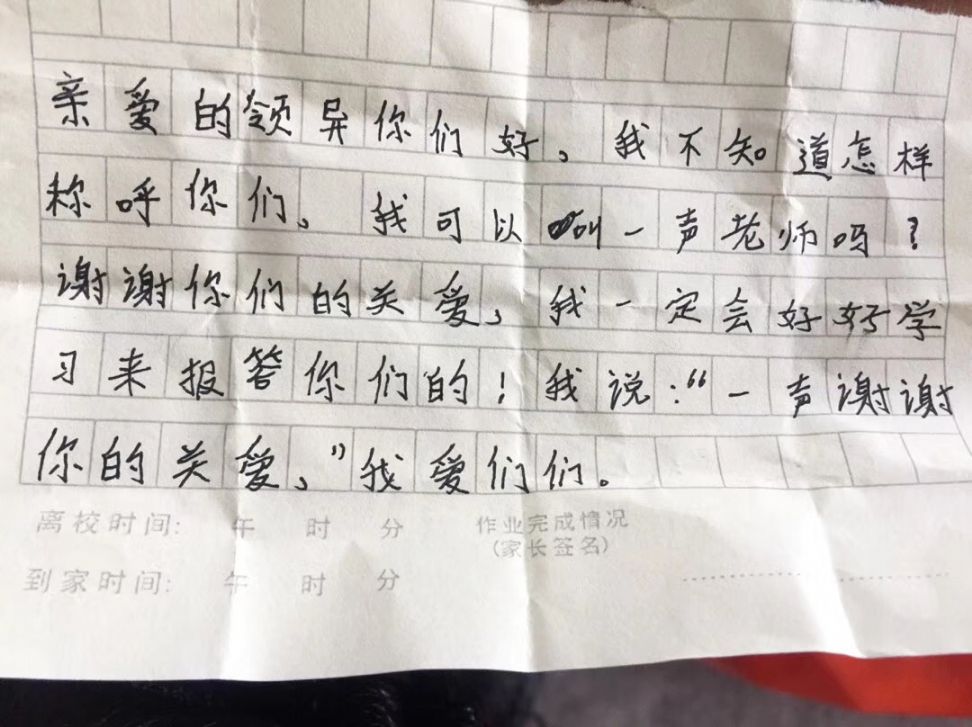 亲爱的领异你们好。我不知道怎样
称呼你们、我可以叫一声老师吗？
谢谢你们的关爱，我一定会好好学
习来报答你们的！我说：“一声谢谢
你的关爱、”我爱们们。
离校时间： 午 时 分 作业完成情况
(家长签名)
到家时间： 午 时 分